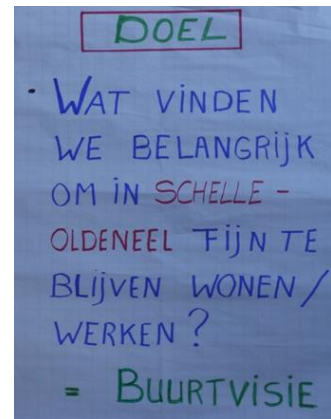 DOEL
· WAT VINDEN
WE BELANGRIJK
OM IN SCHELLE -
OLDENEEL FIJN TE
BLIJVEN WONEN /
WERKEN?
= BUURTVISIE